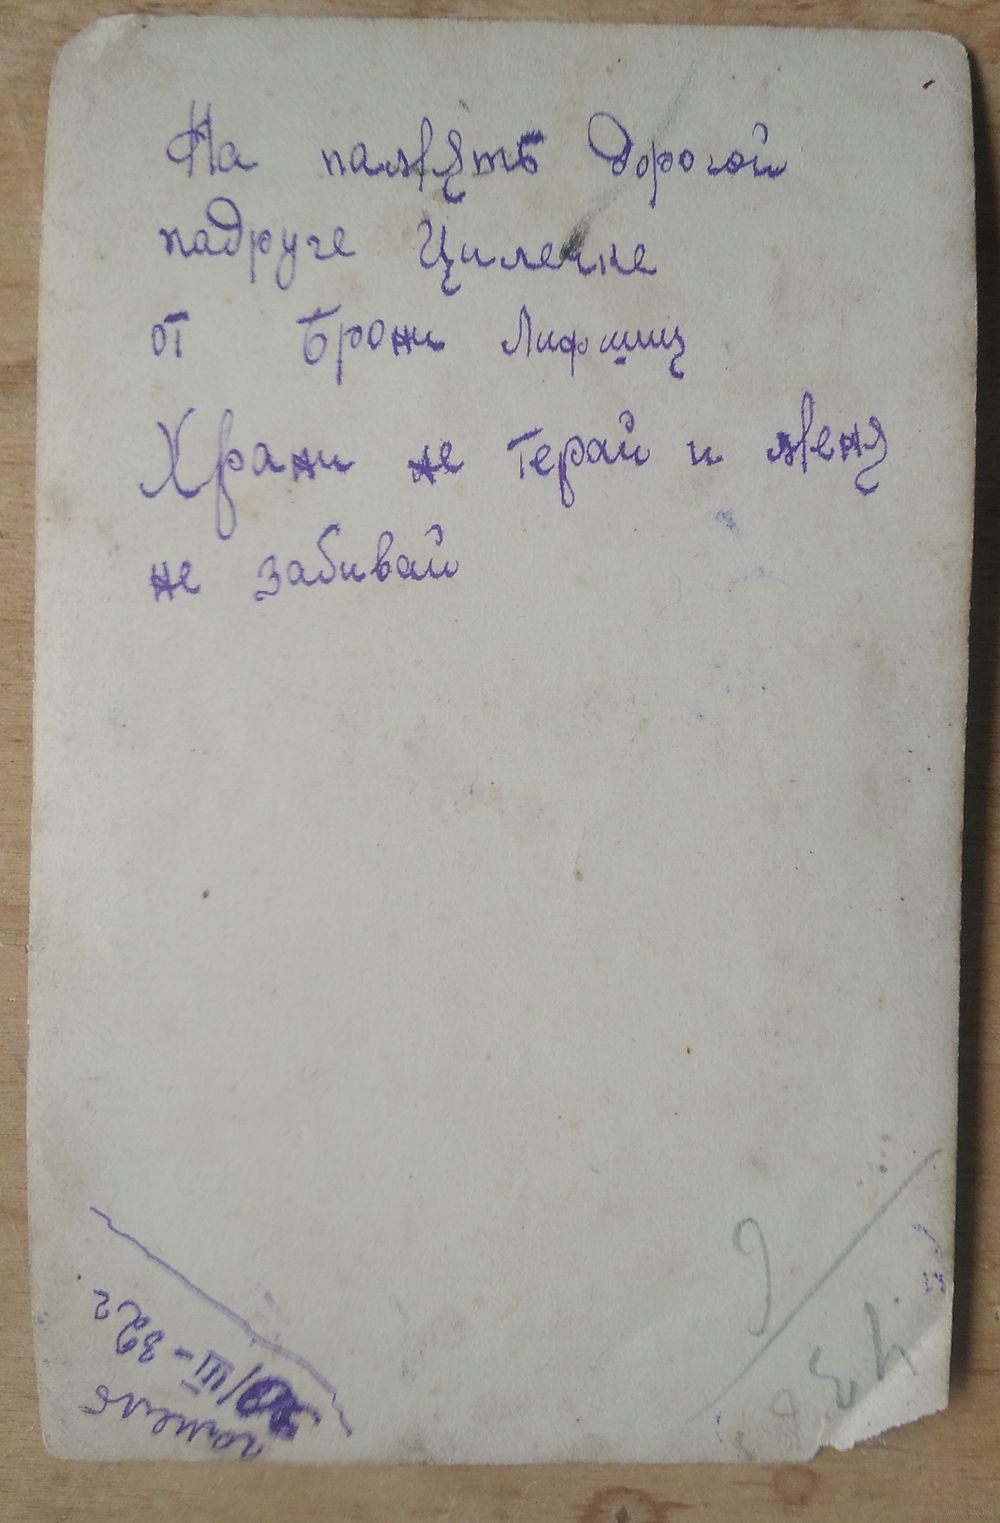 На память дорогой
падруге Цилечке
от Брони Лифшиц
Храни не терай и меня
не забивай
гомель
/III - 32 г.